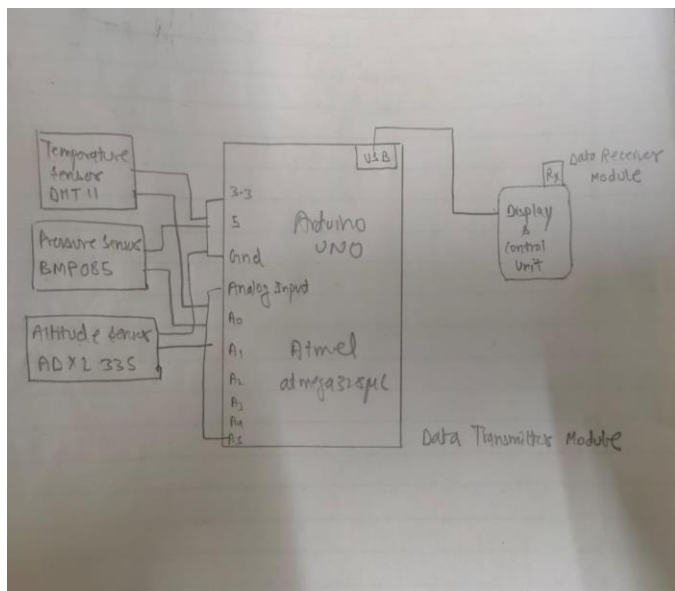 Temperature
Sensor
DHT 11
Pressure Sensor
BMP085
Altitude Sensor
ADXL 335
USB
3.3
5
Gnd
Analog Input
A0
A1
A2
A3
A4
A5
Arduino
UNO
Atmel
atmega328µC
Display
&
Control
Unit
Rx
Data Receiver
Module
Data Transmitter Module